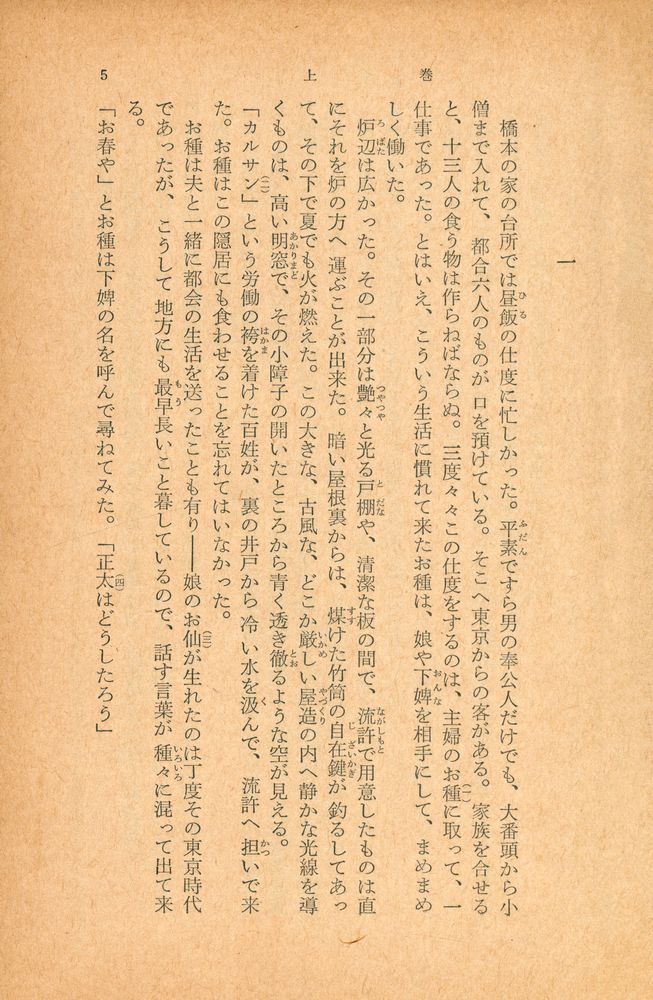 一
橋本の家の台所では昼飯の仕度に忙しかった。平素ですら男の奉公人だけでも、大番頭から小
僧まで入れて、都合六人のものが口を預けている。そこへ東京からの客がある。家族を合せる
と、十三人の食う物は作らねばならぬ。三度々々この仕度をするのは、主婦のお種に取って、一
仕事であった。とはいえ、こういう生活に慣れて来たお種は、娘や下婢を相手にして、まめまめ
しく働いた。
炉辺は広かった。その一部分は艶々と光る戸棚や、清潔な板の間で、流許で用意したものは直
にそれを炉の方へ運ぶことが出来た。暗い屋根裏からは、煤けた竹筒の自在鍵が釣るしてあっ
て、その下で夏でも火が燃えた。この大きな、古風な、どこか厳しい屋造の内へ静かな光線を導
くものは、高い明窓で、その小障子の開いたところから青く透き徹るような空が見える。
「カルサン」という労働の袴を着けた百姓が、裏の井戸から冷い水を汲んで、流許へ担いで来
た。お種はこの隠居にも食わせることを忘れてはいなかった。
お種は夫と一緒に都会の生活を送ったことも有り――娘のお仙が生れたのは丁度その東京時代
であったが、こうして地方にも最早長いこと暮しているので、話す言葉が種々に混って出て来
る。
「お春や」とお種は下婢の名を呼んで尋ねてみた。「正太はどうしたろう」
巻
上
5